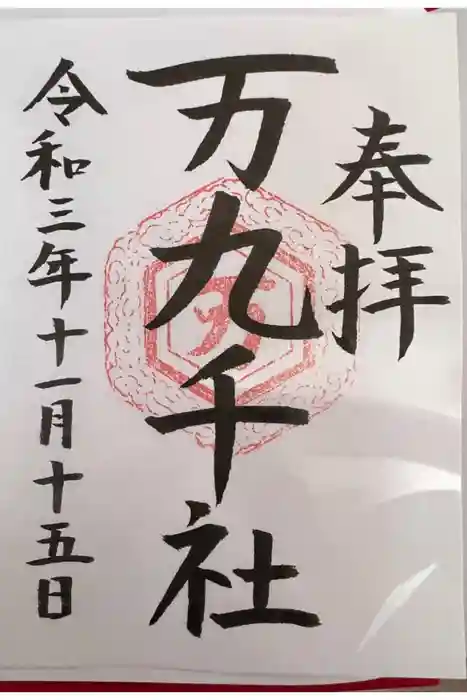 奉拝
万九千社
令和三年十一月十五日